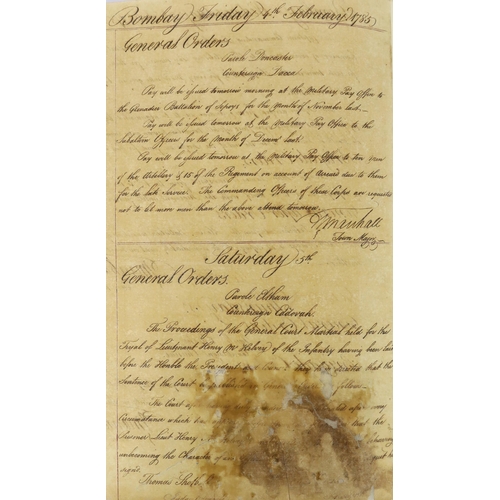 Bombay Friday 4th February 1785
General Orders
Parole Doncaster
Countersign Dacca
Pay will be issued tomorrow morning at the Military Pay Office to
the Grenadier Battalion of Sepoys for the Month of November last.
Pay will be issued tomorrow at the Military Pay Office to the
Subaltern Officers for the Month of Decem last.
Pay will be issued tomorrow at the Military Pay Office to ten men
of the Artillery & 15 of the Regiment on account of Arrears due to them
for the late Service. The Commanding Officers of these Corps are requested
not to let more men than the above attend tomorrow.
Marshall
Town Major
Saturday 5th
General Orders.
Parole Eltham
Countersign
The Proceedings of the General Court Martial held for the
Tryal of Lieutenant Henry of the Infantry having been laid
before the Honble the President and that the
Sentence of the Court follows
The Court
Circumstance which
Prisoner Lieut Henry
unbecoming the Character of
Thomas